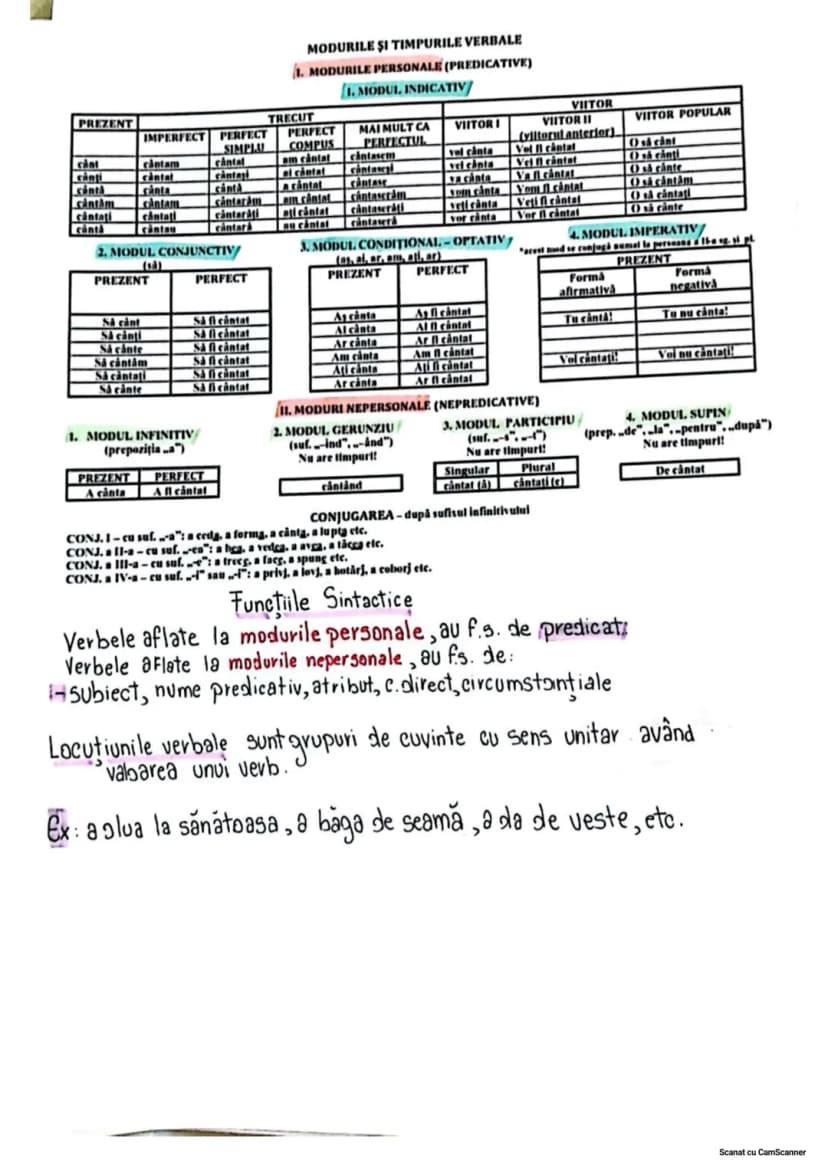 MODURILE ȘI TIMPURILE VERBALE
I. MODURILE PERSONALE (PREDICATIVE)
1. MODUL INDICATIV
PREZENT TRECUT VIITOR
IMPERFECT PERFECT SIMPLU PERFECT COMPUS MAI MULT CA PERFECTUL VIITOR I VIITOR II (viitorul anterior) VIITOR POPULAR
cânt cântam cântai am cântat cântasem voi cânta Voi fi cântat O să cânt
cânți cântai cântași ai cântat cântaseși vei cânta Vei fi cântat O să cânți
cântă cânta cântă a cântat cântase va cânta Va fi cântat O să cânte
cântăm cântam cântarăm am cântat cântaserăm vom cânta Vom fi cântat O să cântăm
cântați cântați cântarăți ați cântat cântaserăți veți cânta Veți fi cântat O să cântați
cântă cântau cântară au cântat cântaseră vor cânta Vor fi cântat O să cânte
2. MODUL CONJUNCTIV
(să)
PREZENT PERFECT
Să cânt Să fi cântat
Să cânți Să fi cântat
Să cânte Să fi cântat
Să cântăm Să fi cântat
Să cântați Să fi cântat
Să cânte Să fi cântat
3. MODUL CONDIȚIONAL - OPTATIV
(aș, ai, ar, am, ați, ar)
PREZENT PERFECT
Aș cânta Aș fi cântat
Ai cânta Ai fi cântat
Ar cânta Ar fi cântat
Am cânta Am fi cântat
Ați cânta Ați fi cântat
Ar cânta Ar fi cântat
4. MODUL IMPERATIV
*acest mod se conjugă numai la persoana a II-a sg. și pl.
PREZENT
Formă afirmativă Formă negativă
Tu cântă! Tu nu cânta!
Voi cântați! Voi nu cântați!
II. MODURI NEPERSONALE (NEPREDICATIVE)
1. MODUL INFINITIV
(prepoziția „a")
PREZENT PERFECT
A cânta A fi cântat
2. MODUL GERUNZIU
(suf. „-ind", „-ând")
Nu are timpuri!
cântând
3. MODUL PARTICIPIU
(suf. „-s", „-t")
Nu are timpuri!
Singular Plural
cântat (ă) cântați (e)
4. MODUL SUPIN
(prep. „de", „la", „pentru", „după")
Nu are timpuri!
De cântat
CONJUGAREA - după sufixul infinitivului
CONJ. I - cu suf. „-a": a ceda, a forma, a cânta, a lupta etc.
CONJ. a II-a - cu suf. „-ea": a bea, a vedea, a avea, a tăcea etc.
CONJ. a III-a - cu suf. „-e": a trece, a face, a spune etc.
CONJ. a IV-a - cu suf. „-i" sau „-î": a privi, a lovi, a hotărî, a coborî etc.
Funcțiile Sintactice
Verbele aflate la modurile personale, au f.s. de predicat;
Verbele aflate la modurile nepersonale, au f.s. de:
→ subiect, nume predicativ, atribut, c. direct, circumstanțiale
Locuțiunile verbale sunt grupuri de cuvinte cu sens unitar având
valoarea unui verb.
Ex: a o lua la sănătoasa, a băga de seamă, a da de veste, etc.
Scanat cu CamScanner